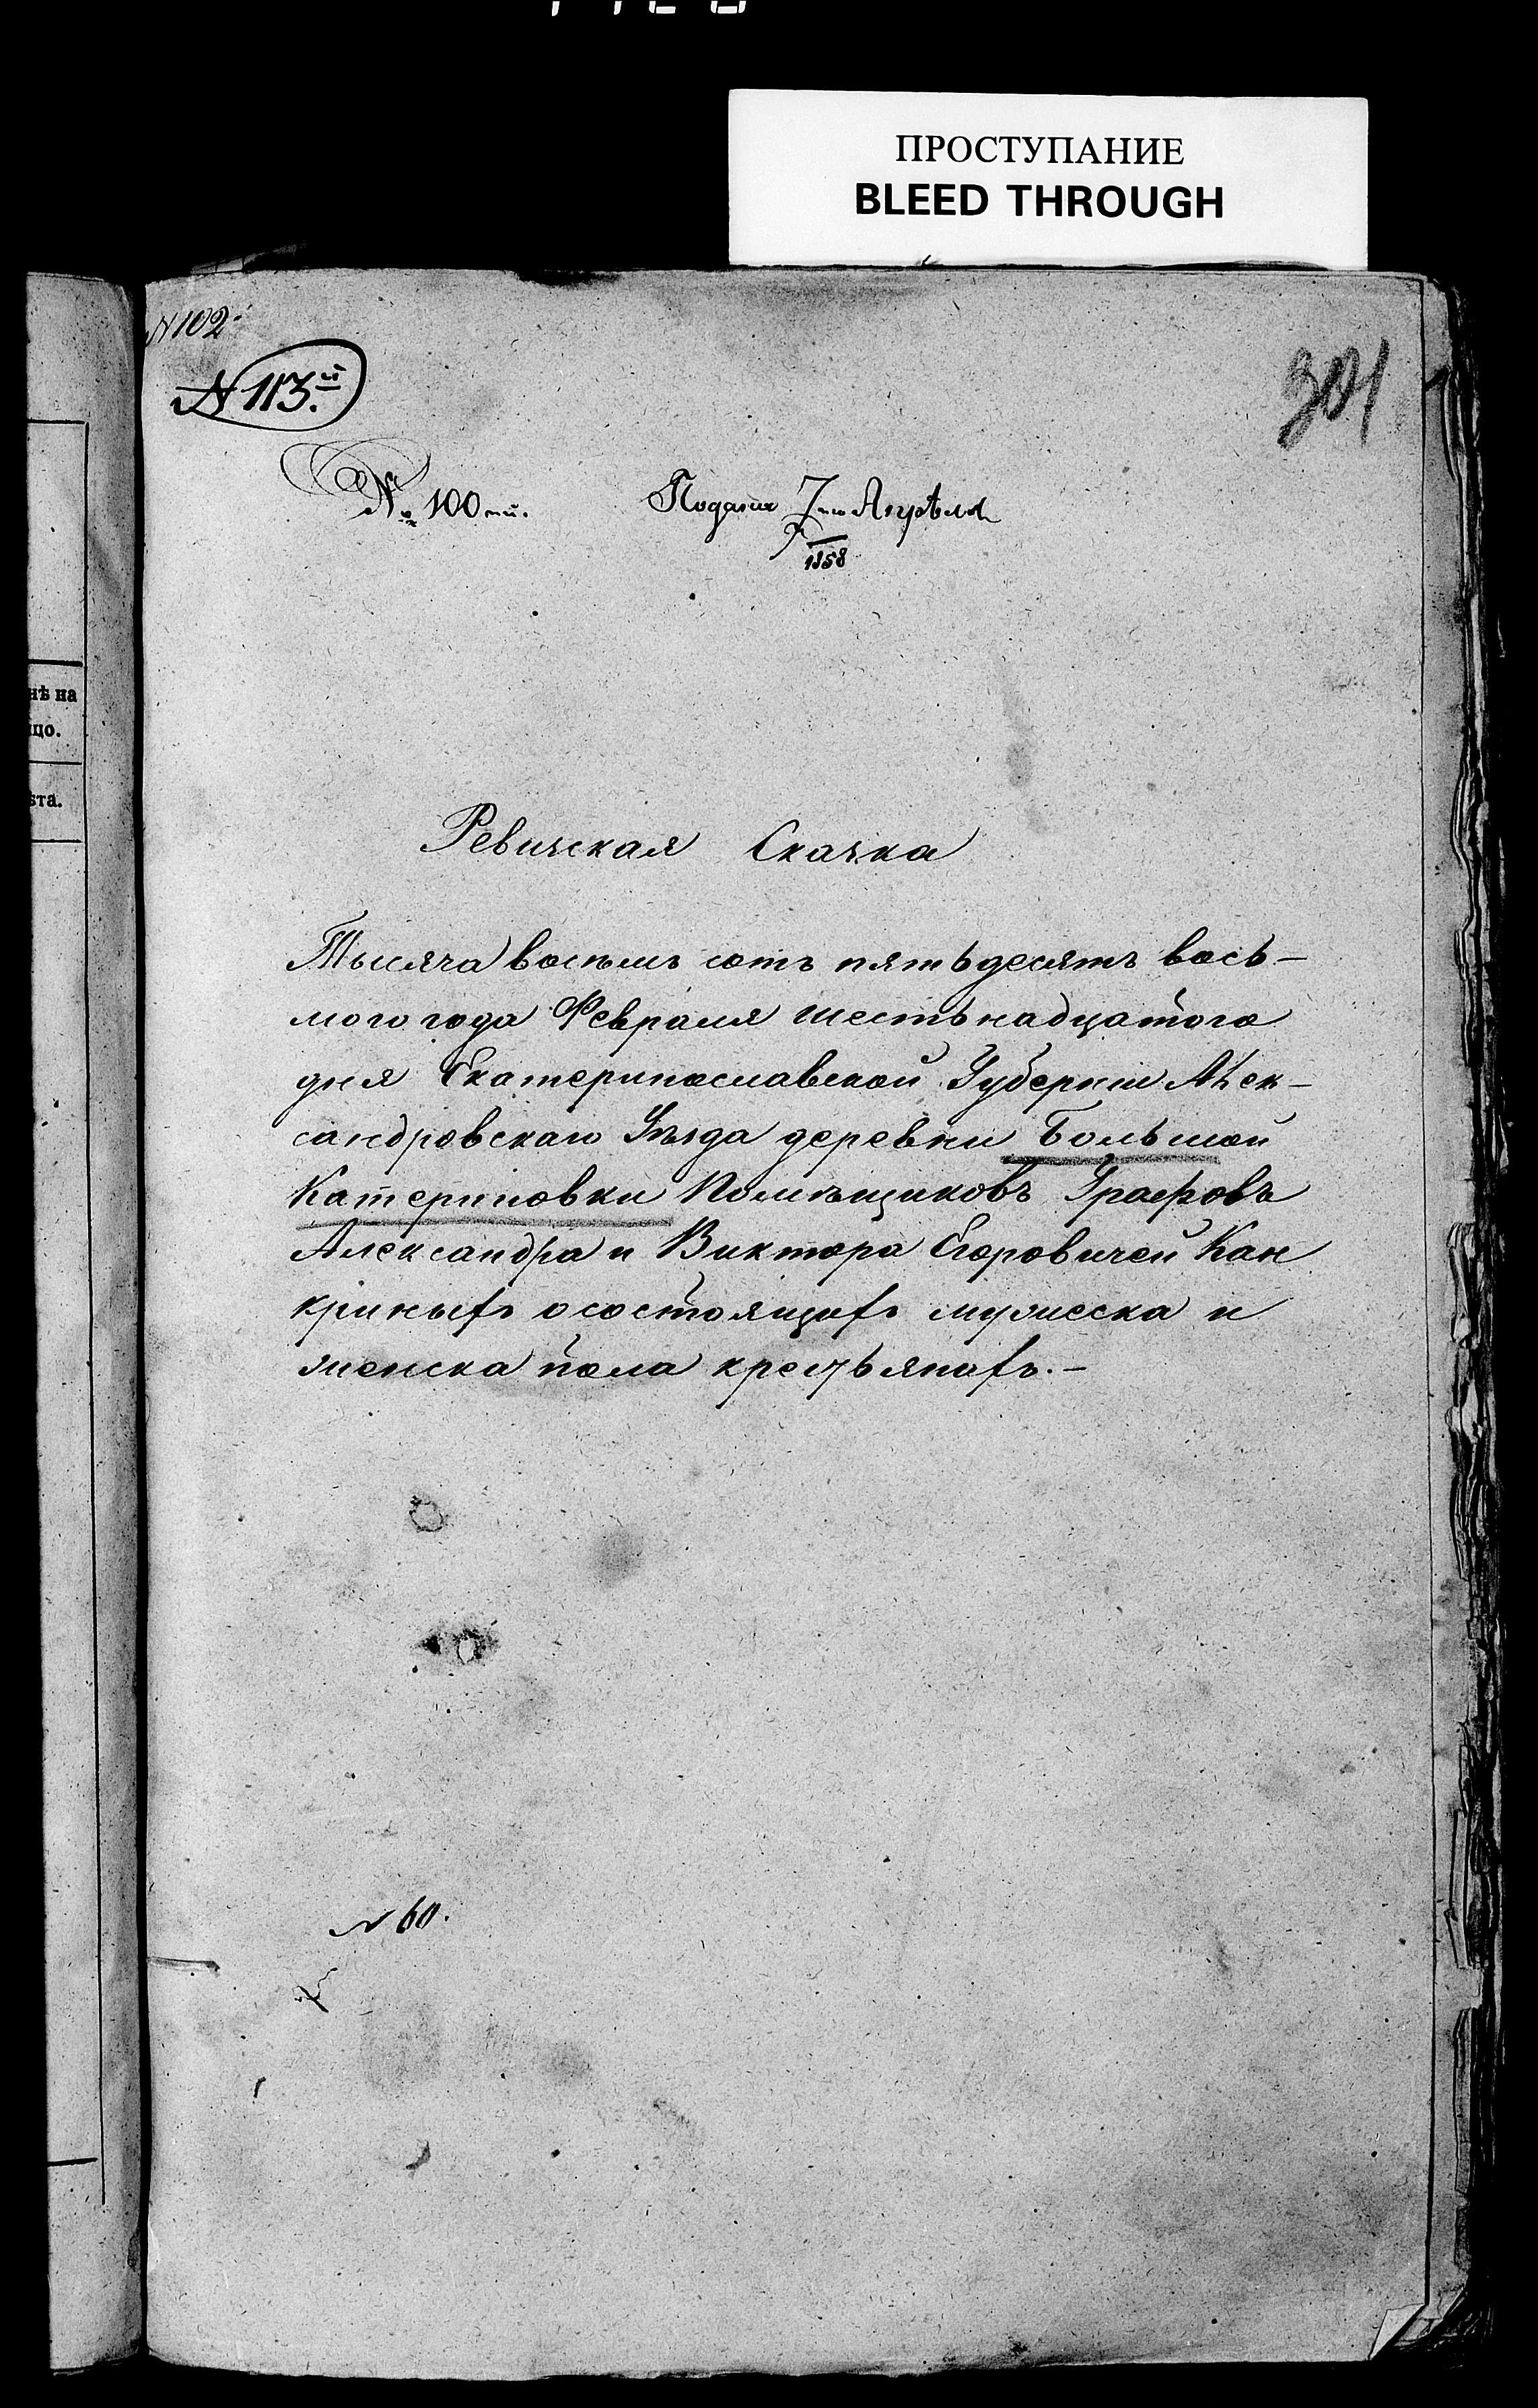 ПРОСТУПАНИЕ
BLEED THROUGH
N 102
N 113.й
301
№ 100ый. Подана 7го Апрѣля
1858
нѣ на
цо.
ѣта.
Ревизская Сказка
Тысяча восемь сотъ пятьдесятъ вось-
мого года Февраля шестьнадцатого
дня Екатеринославской Губерніи Алек-
сандровскаго Уѣзда деревни Большой
Катериновки Помѣщиковъ Графовъ
Александра и Виктора Егоровичей Кан
криныхъ о состоящихъ мужеска и
женска пола крестьянахъ.-
N 60.